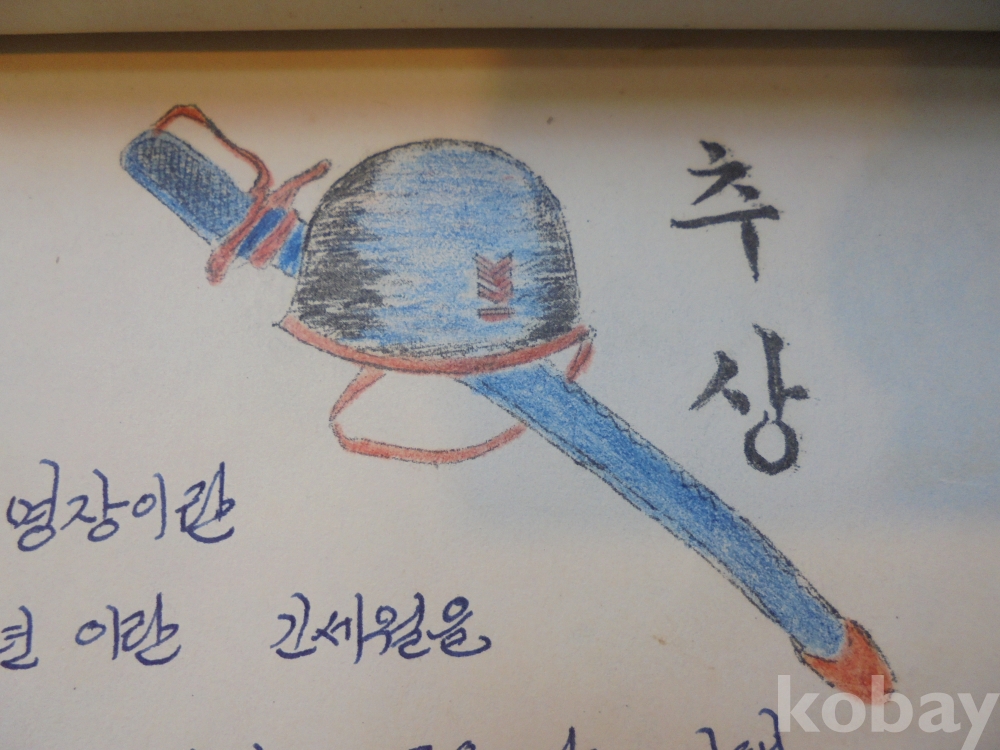 추상
명장이란
년 이란 긴세월을
kobay